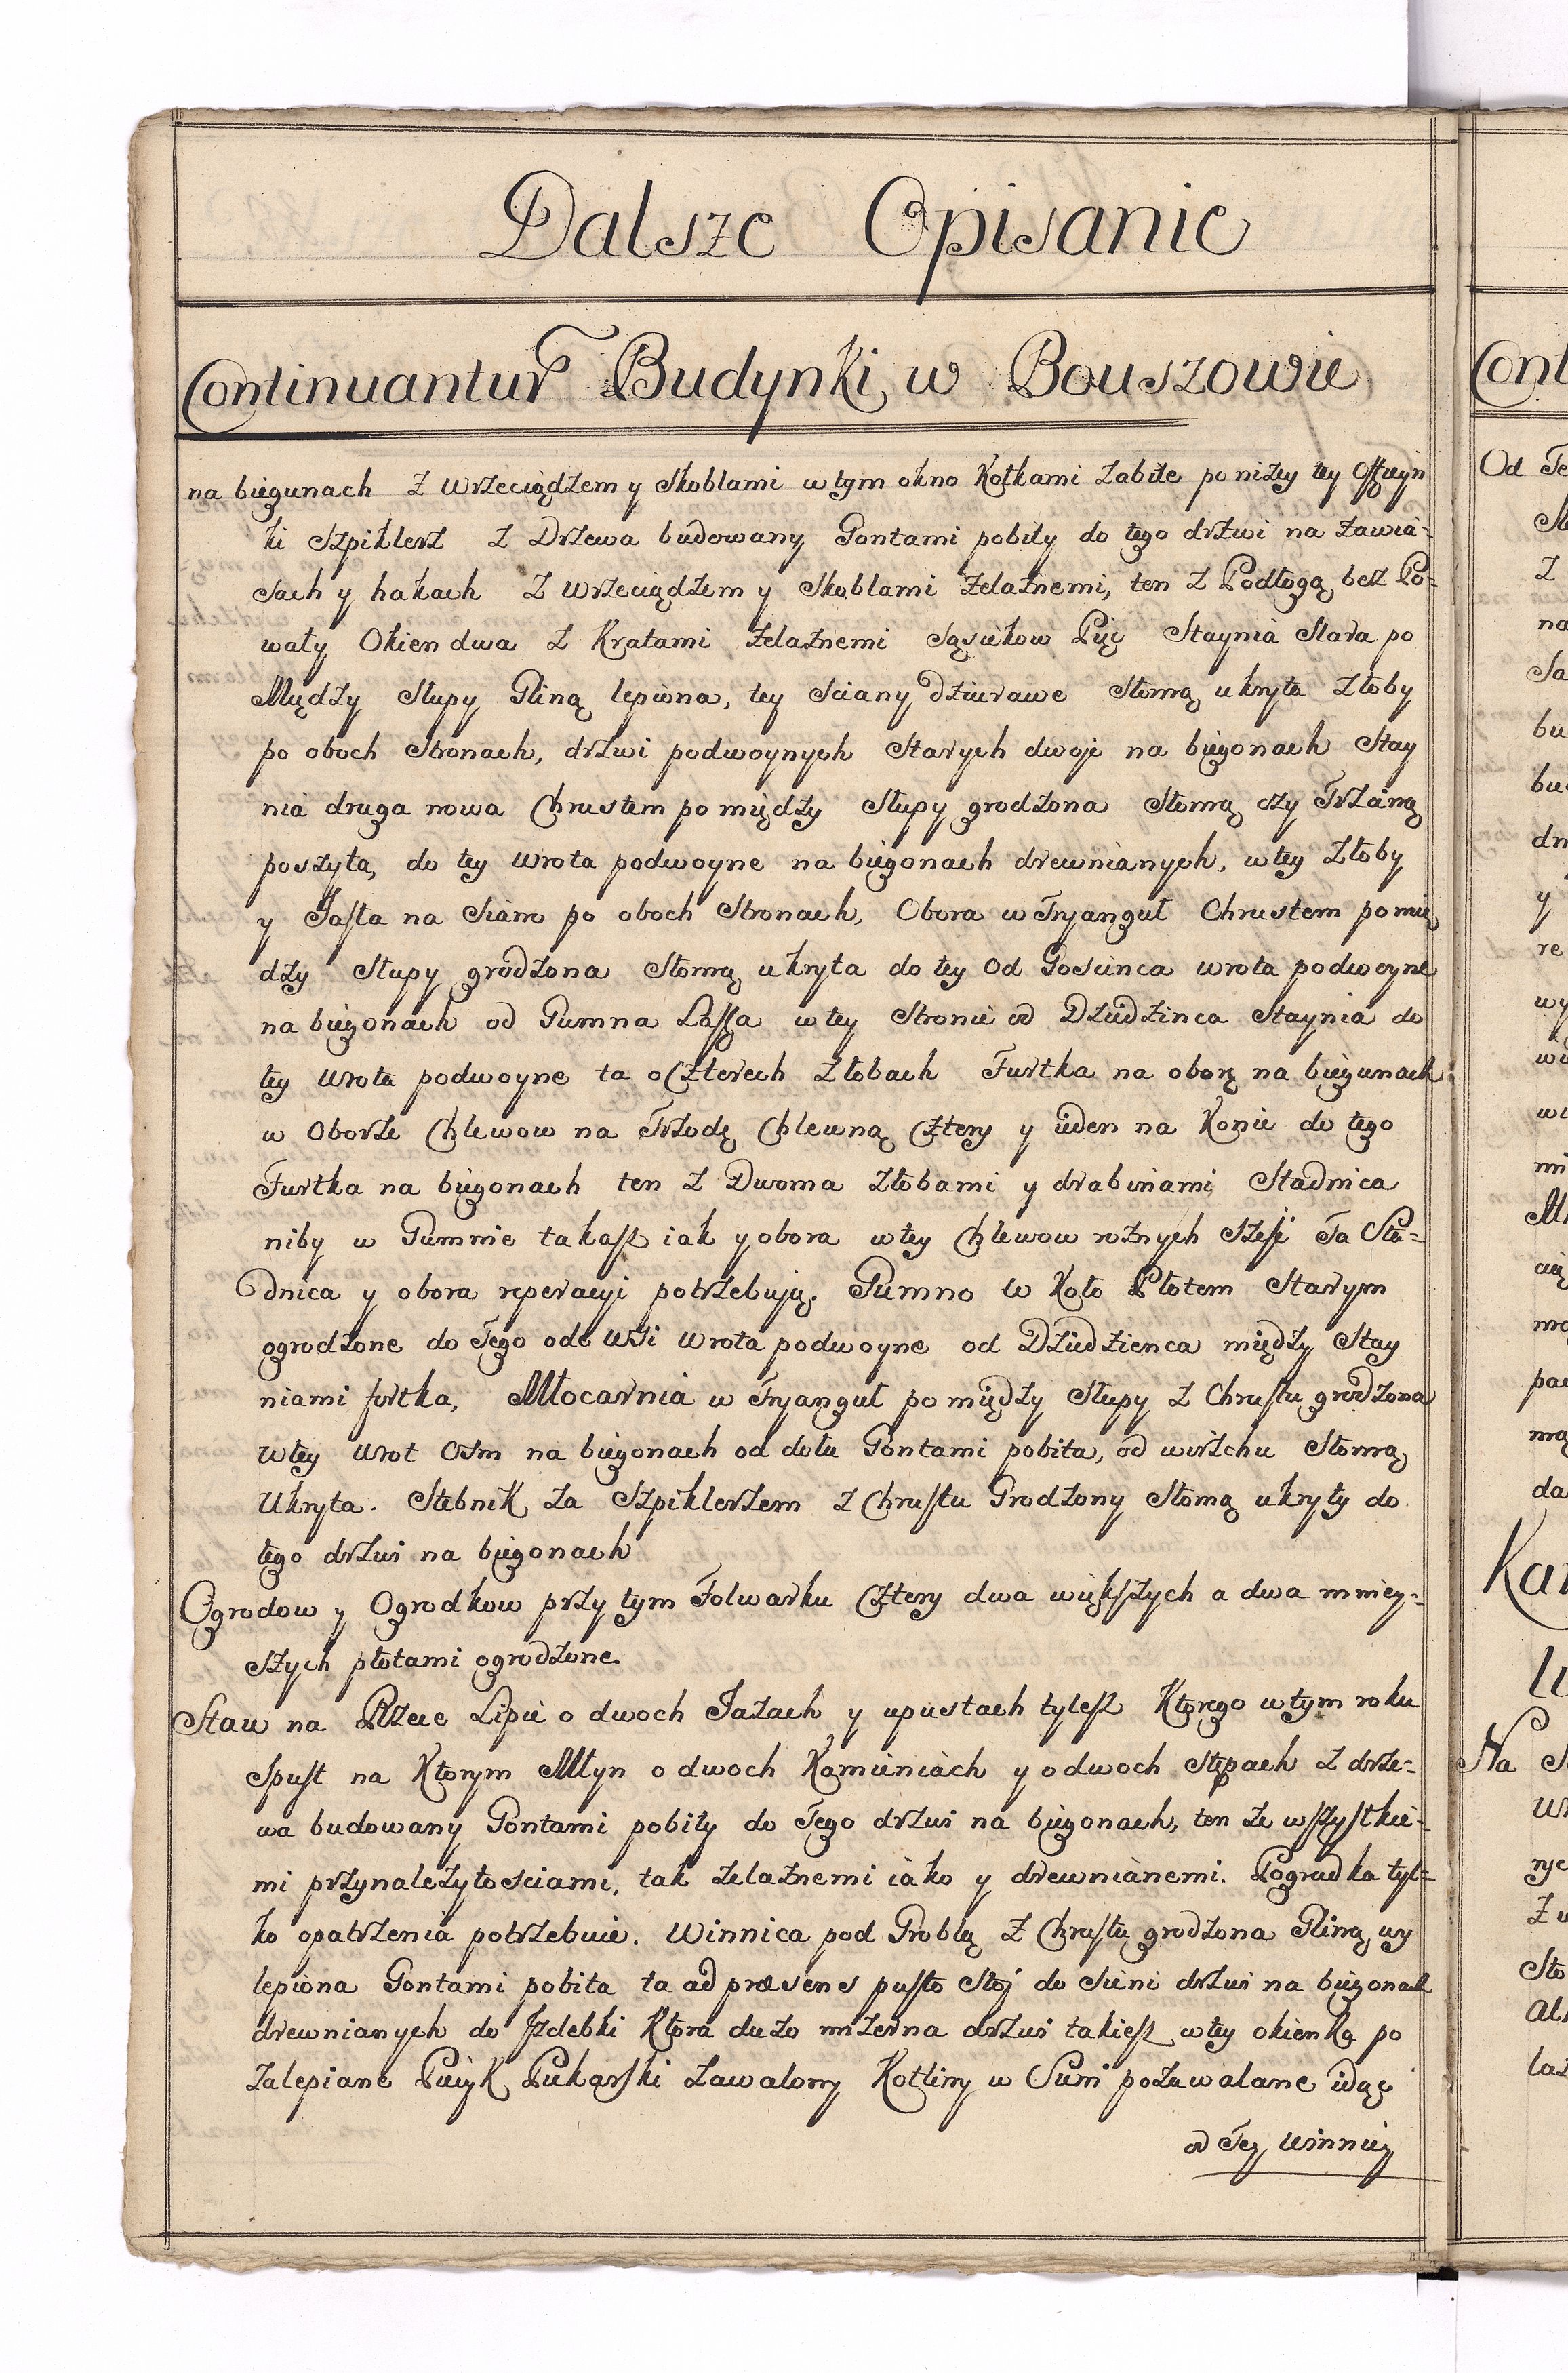 Dalsze Opisanie
Continuantur Budynki w Bouszowie
na biegunach z wrzeciądzem y Skoblami w tym okno Kołkami zabite poniżey tey Officyn
ki Szpiklerz z Drzewa budowany Gontami pobity do tego drzwi na zawia-
sach y hakach z wrzeciądzem y Skoblami żelaznemi, ten z Podłogą bez Po-
wały Okien dwa z Kratami żelaznemi Sąsiekow Pięć Staynia Stara po
Między Słupy Gliną lepiona, tey Sciany dziurawe Słomą ukryta Złoby
po oboch Stronach, drzwi podwoynych Starych dwoje na biegonach Stay
nia druga nowa Chrustem pomiędzy Słupy grodzona Słomą czy Trzciną
poszyta, do tey wrota podwoyne na biegonach drewnianych, w tey Złoby
y Jasła na Siano po oboch Stronach, Obora w Tryanguł Chrustem pomię
dzy Słupy grodzona Słomą ukryta do tey Od Goscinca wrota podwoyne
na biegonach od Gumna Lassa w tey Stronie od Dziedzinca Staynia do
tey wrota podwoyne ta o Czterech Złobach Furtka na oborę na biegunach
w Oborze Chlewow na Trzodę Chlewną Cztery y ieden na Konie do tego
Furtka na biegonach ten z Dwoma Złobami y drabinami Stadnica
niby w Gumnie takasz iak y obora w tey Chlewow roznych Szesć Ta Sta-
dnica y obora reperacyi potrzebują. Gumno w Koło Płotem Starym
ogrodzone do Tego ode wsi wrota podwoyne od Dziedzienca między Stay
niami fortka, Młocarnia w Tryanguł pomiędzy Słupy z Chrustu grodzona
w tey wrot Osm na biegonach od dołu Gontami pobita, od wirzchu Słomą
Ukryta. Stebnik za Szpiklerzem z Chrustu Grodzony Słomą ukryty do
tego drzwi na biegonach
Ogrodow y Ogrodkow przy tym Folwarku Cztery dwa większych a dwa mniey-
szych płotami ogrodzone
Staw na Rzece Lipie o dwoch Jazach y upustach tylesz Ktorego w tym roku
Spust na Ktorym Młyn o dwoch Kamieniach y o dwoch Stępach z drze-
wa budowany Gontami pobity do Tego drzwi na biegonach, ten ze wszystkie-
mi przynależytosciami, tak żelaznemi iako y drewnianemi. Pogrudka tyl-
ko opatrzenia potrzebuie. Winnica pod Groblą z Chrustu grodzona Gliną wy
lepiona Gontami pobita ta ad præsens pusto Stoj do Sieni drzwi na biegonach
drewnianych do Jzdebki Ktora dużo mizerna drzwi takiesz w tey okienka po
zalepiane Piecyk Piekarski zawalony Kotliny w Sieni pozawalane idąc
od Tey Winnicy